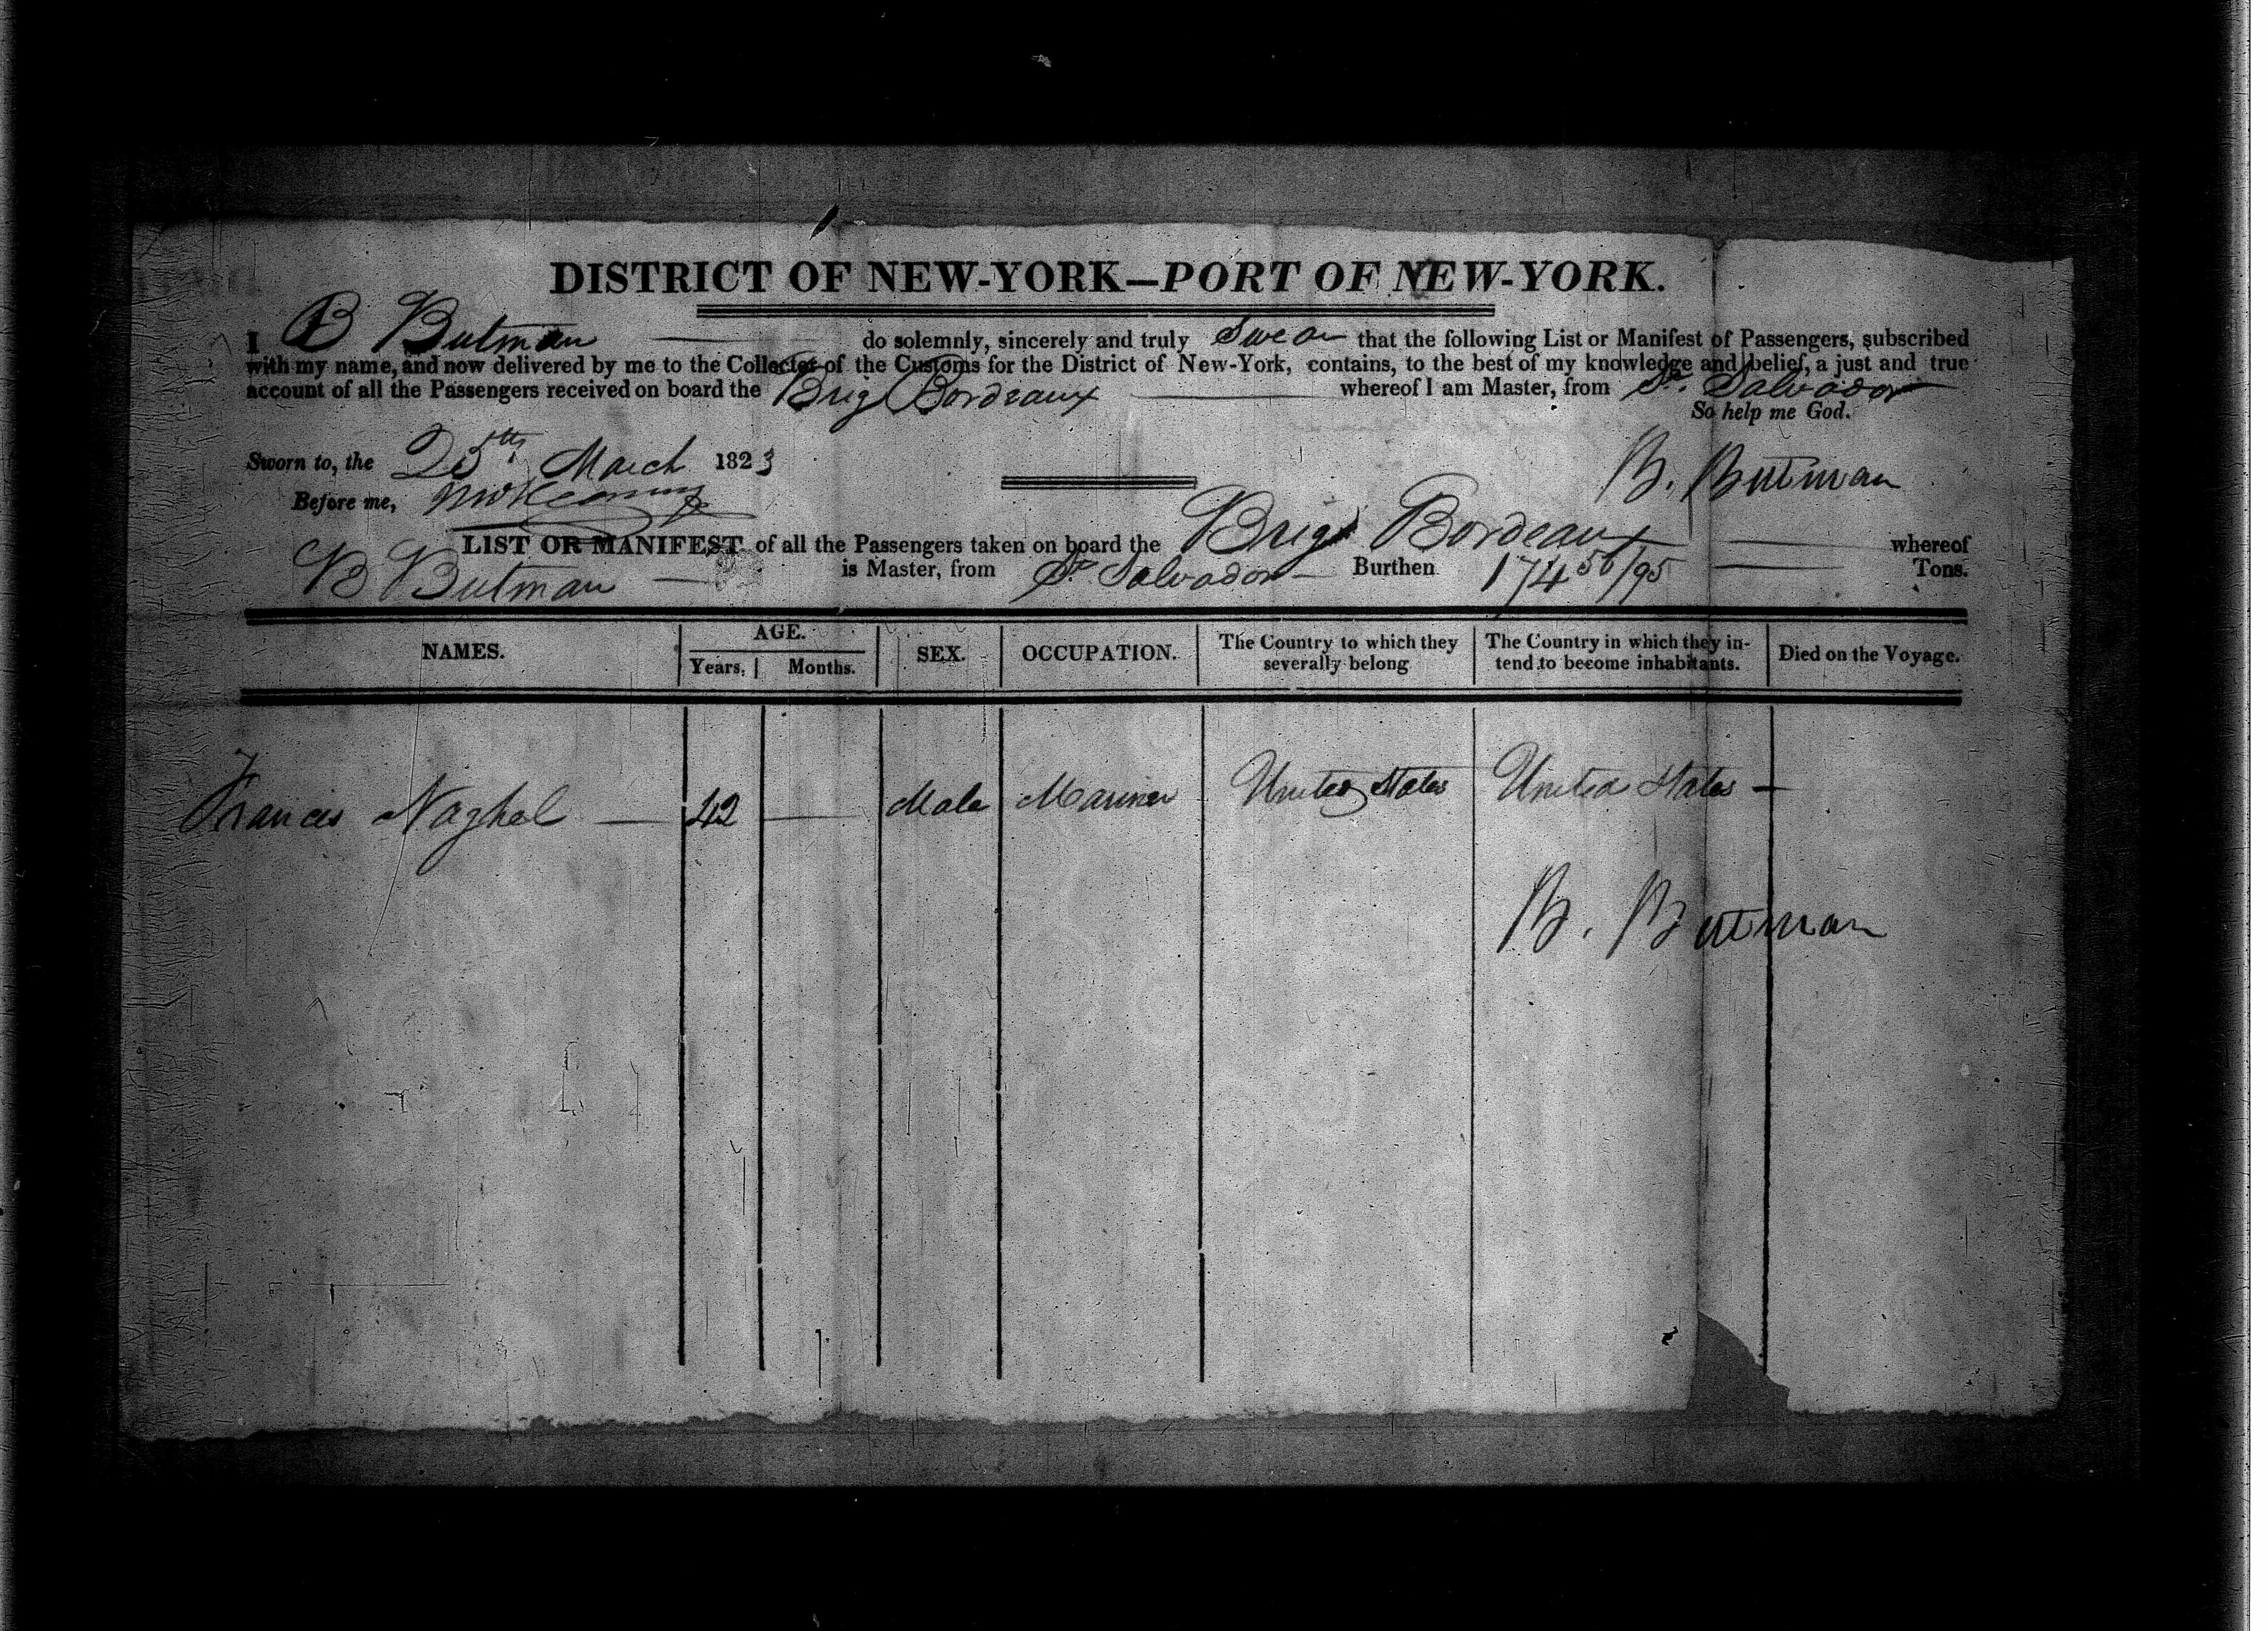 DISTRICT OF NEW-YORK—PORT OF NEW-YORK.
I B Butman do solemnly, sincerely and truly Swear that the following List or Manifest of Passengers, subscribed
with my name, and now delivered by me to the Collector of the Customs for the District of New-York, contains, to the best of my knowledge and belief, a just and true
account of all the Passengers received on board the Brig Bordeaux whereof I am Master, from St. Salvador
So help me God.
Sworn to, the 25th March 1823
B. Butman
Before me,
LIST OR MANIFEST of all the Passengers taken on board the Brig Bordeaux whereof
B Butman is Master, from St. Salvador Burthen 174 56/95 Tons.
NAMES. AGE. Years. Months. SEX. OCCUPATION. The Country to which they severally belong The Country in which they intend to become inhabitants. Died on the Voyage.
Francis Naghel — 42 — Male Mariner United States United States —
B. Butman